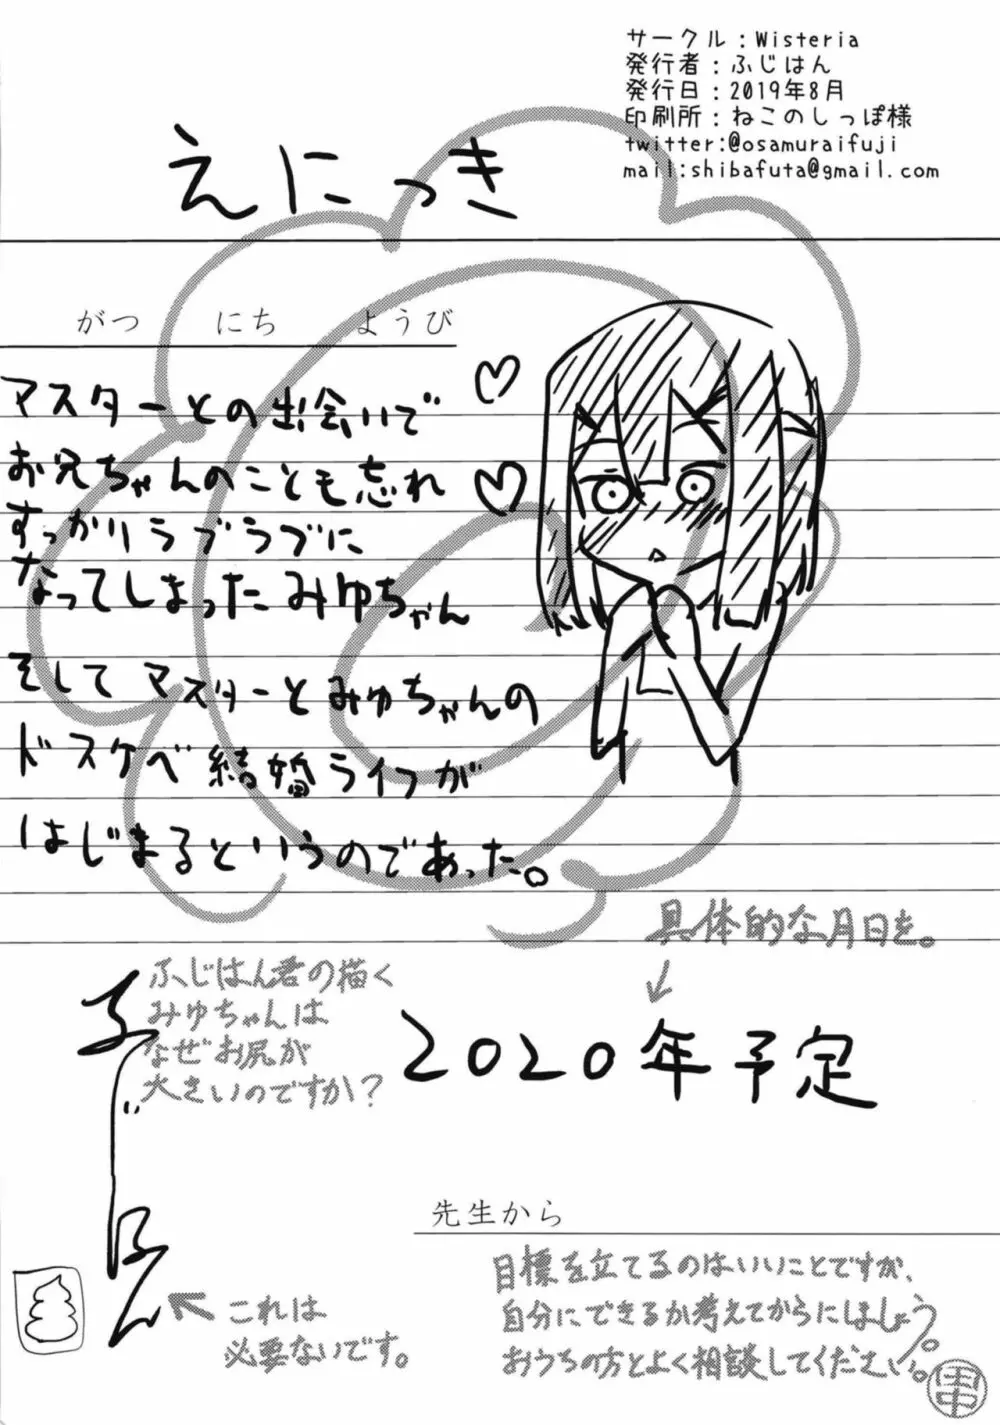 サークル：Wisteria
発行者：ふじはん
発行日：2019年8月
印刷所：ねこのしっぽ様
twitter:@osamuraifuji
mail:shibafuta@gmail.com
えにっき
がつ にち ようび
マスターとの出会いで
お兄ちゃんのことも忘れ
すっかりラブラブに
なってしまったみゆちゃん
そしてマスターとみゆちゃんの
ドスケベ結婚ライフが
はじまるというのであった。
具体的な月日を。
2020年予定
ふじはん君の描く
みゆちゃんは
なぜお尻が
大きいのですか？
ふじはん
これは
必要ないです。
先生から
目標を立てるのはいいことですが、
自分にできるか考えてからにしましょう。
おうちの方とよく相談してください。